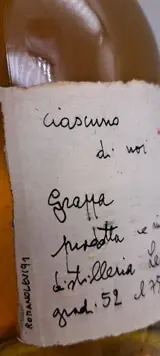 ciascuno
di noi
Grappa
prodotta e
distilleria Le
gradi 52 e
ROMANOLEVI91